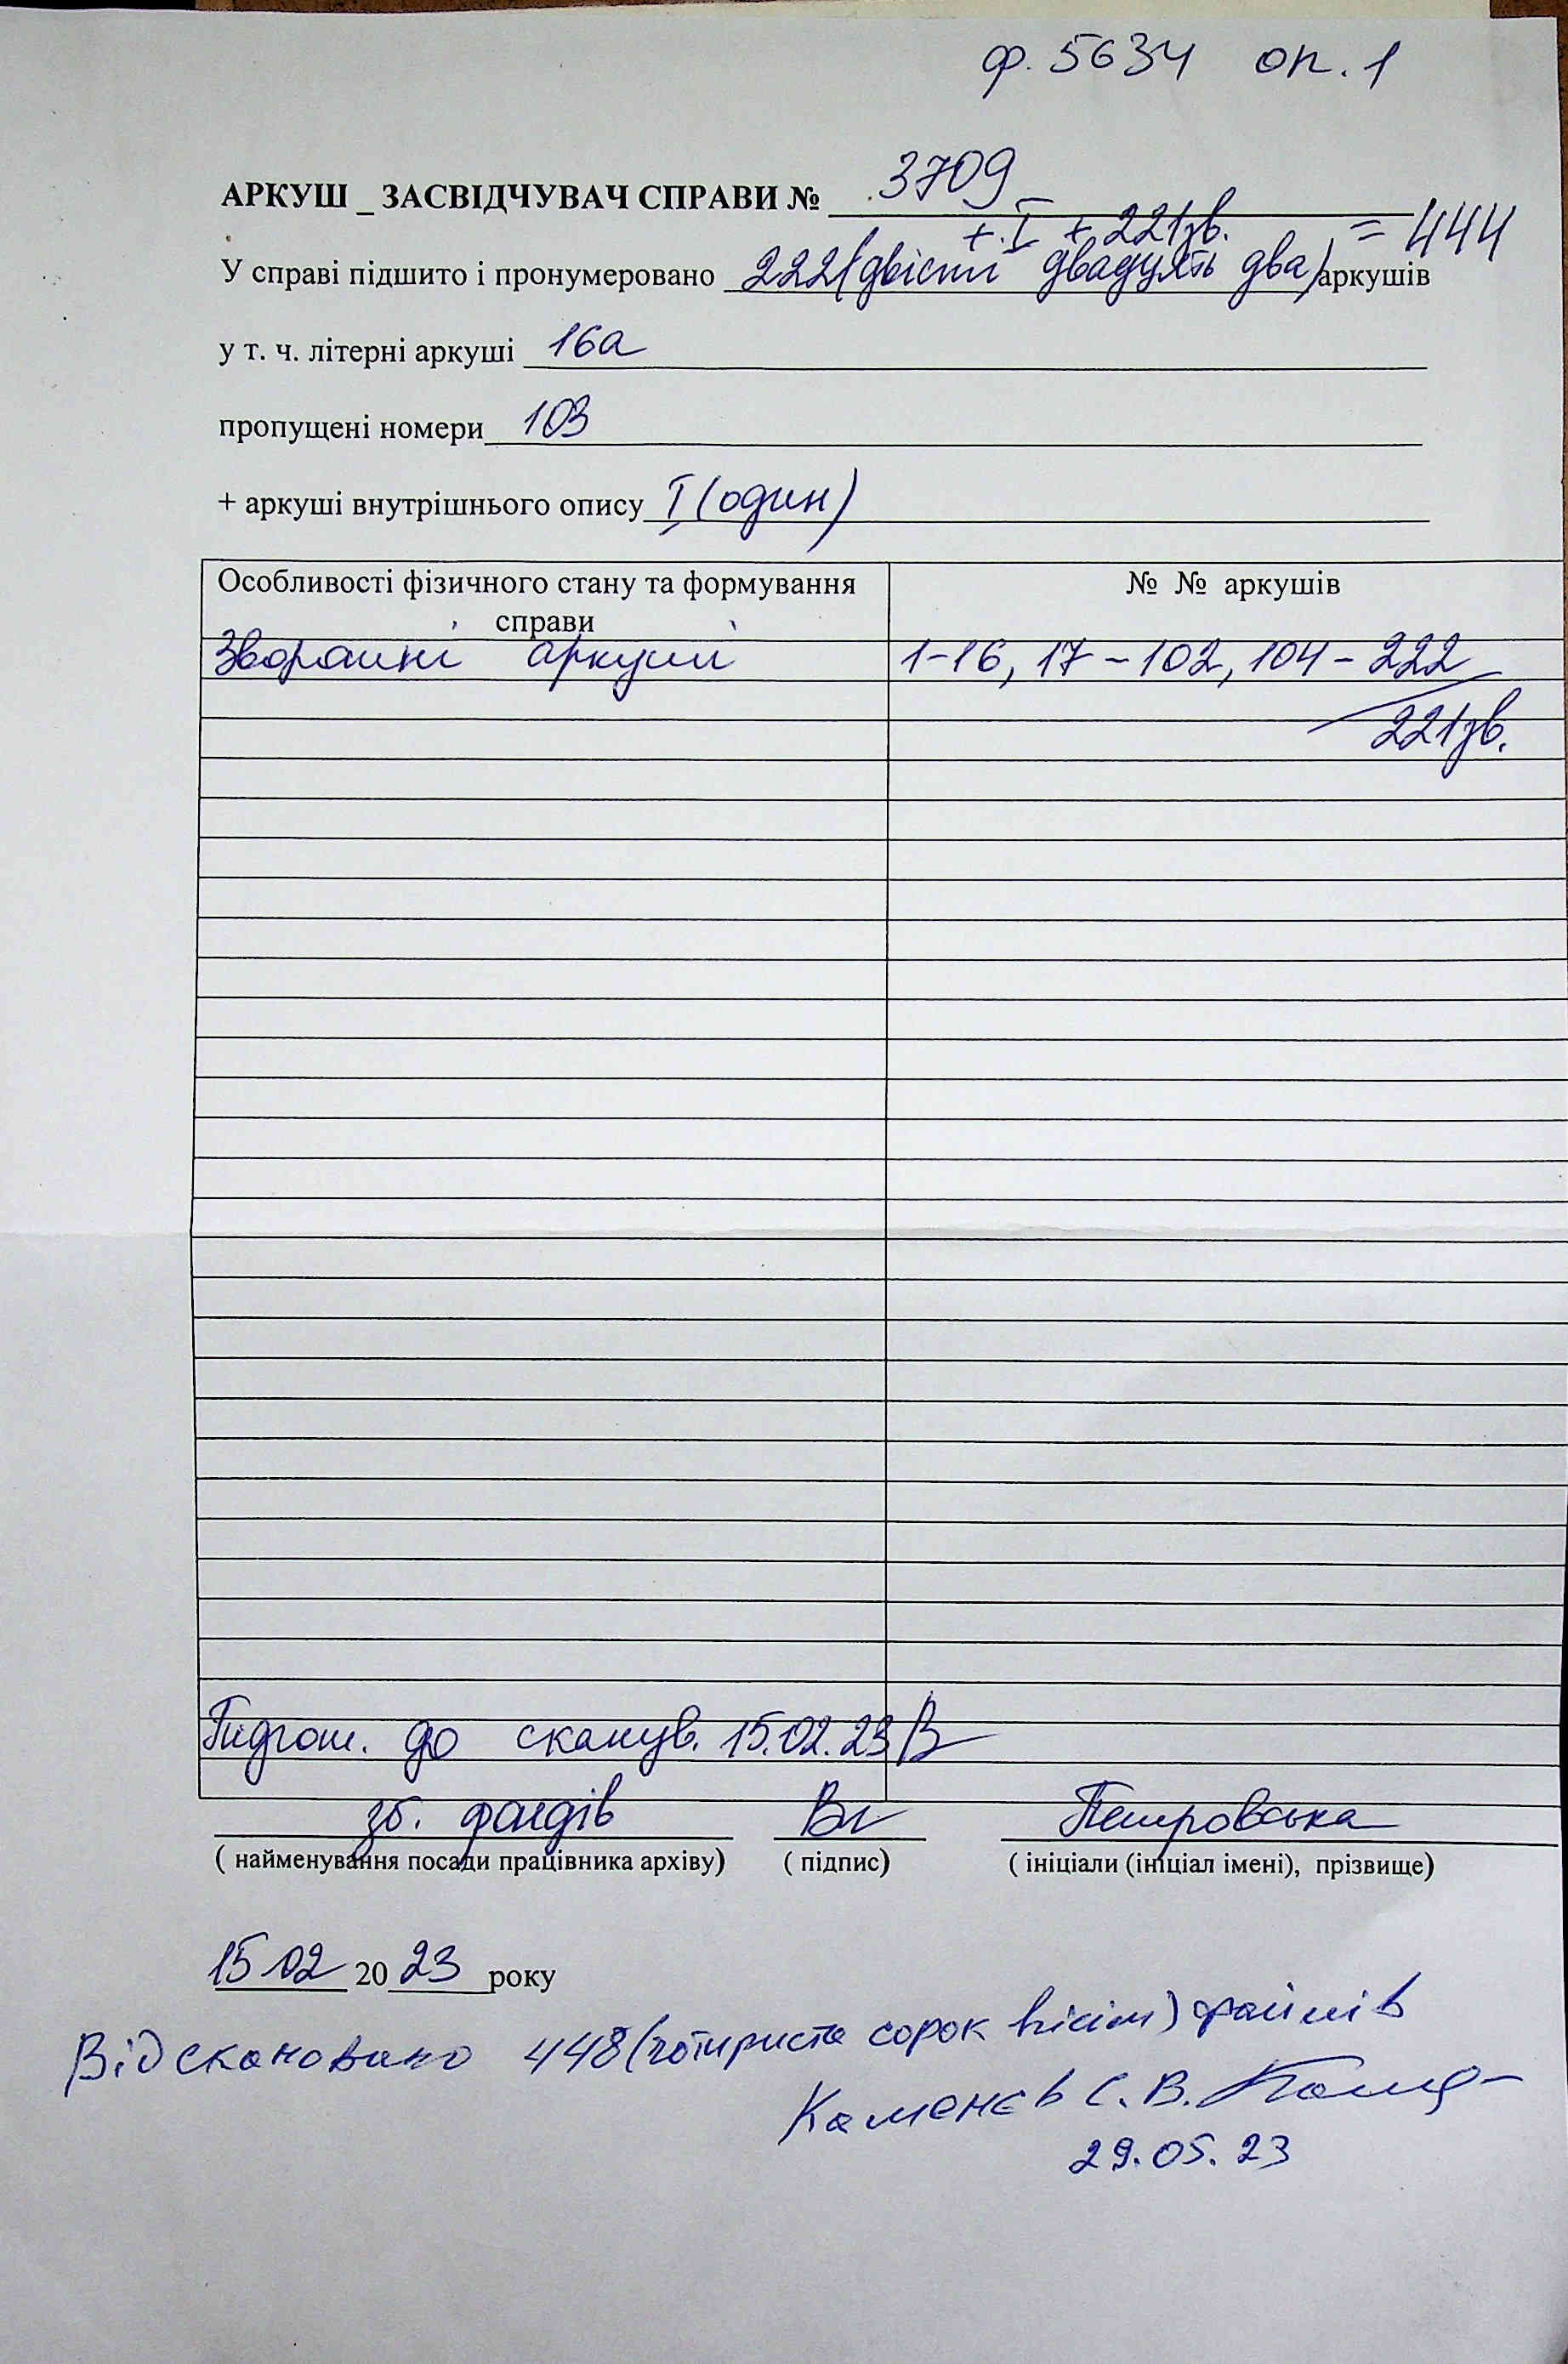 ф. 5634 оп. 1
АРКУШ _ ЗАСВІДЧУВАЧ СПРАВИ № 3709
+ I + 221зв. = 444
У справі підшито і пронумеровано 222(двісті двадцять два) аркушів
у т. ч. літерні аркуші 16а
пропущені номери 103
+ аркуші внутрішнього опису I (один)
Особливості фізичного стану та формування справи № № аркушів
Зворотині аркуші 1-16, 17-102, 104-222
221зв.
Підгот. до сканув. 15.02.23
зб. фондів Петровська
( найменування посади працівника архіву) ( підпис) ( ініціали (ініціал імені), прізвище)
15 02 2023 року
Відскановано 448 (чотириста сорок вісім) файлів
Каменєв С. В.
29.05.23